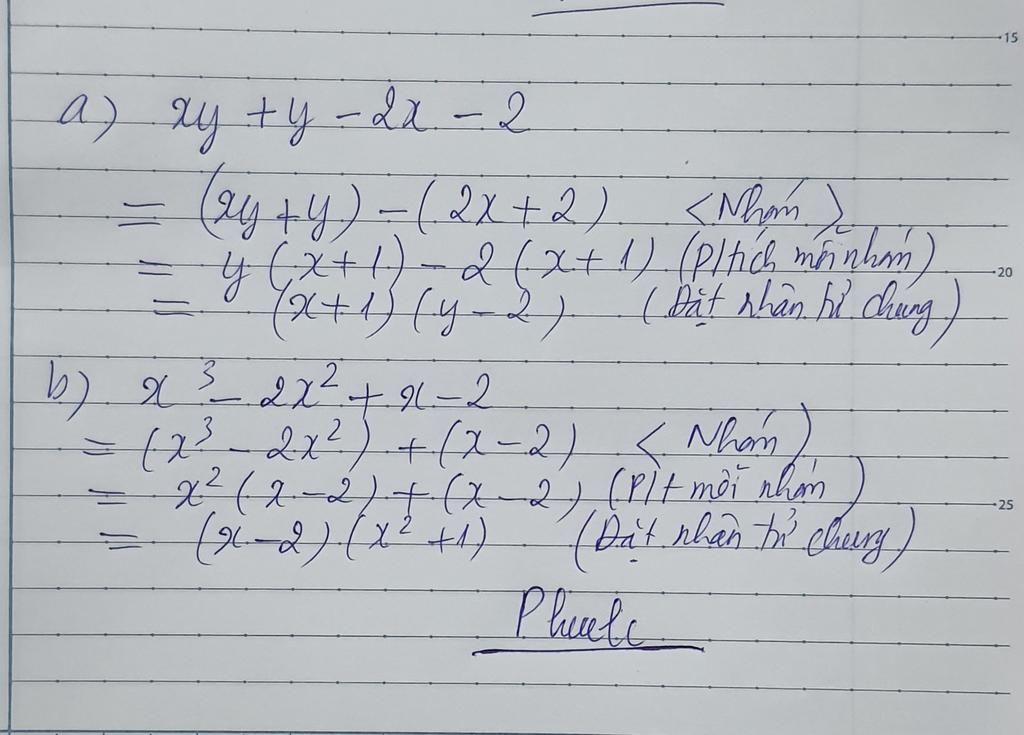 15
a) xy + y - 2x - 2
= (xy + y) - (2x + 2) <Nhóm>
= y(x+1) - 2(x+1) (P/tích mỗi nhóm)
20
= (x+1)(y-2) (Đặt nhân tử chung)
b) x³ - 2x² + x - 2
= (x³ - 2x²) + (x-2) <Nhóm)
= x²(x-2) + (x-2) (P/t mỗi nhóm)
25
= (x-2)(x²+1) (Đặt nhân tử chung)